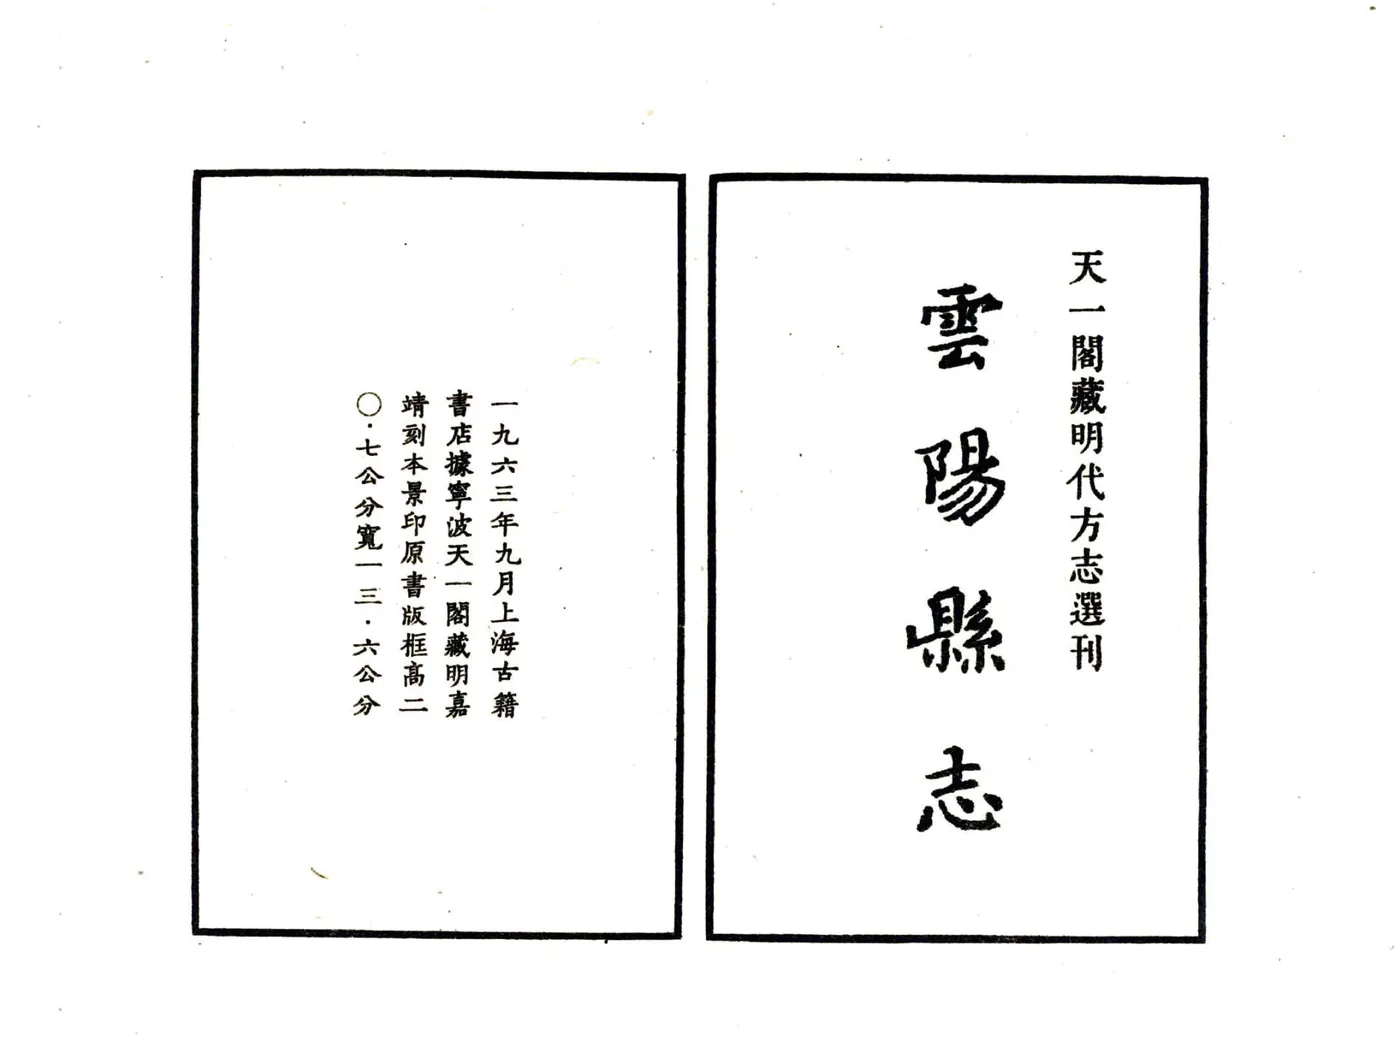 天一閣藏明代方志選刊
雲陽縣志
一九六三年九月上海古籍
書店據寧波天一閣藏明嘉
靖刻本景印原書版框高二
〇·七公分寬一三·六公分